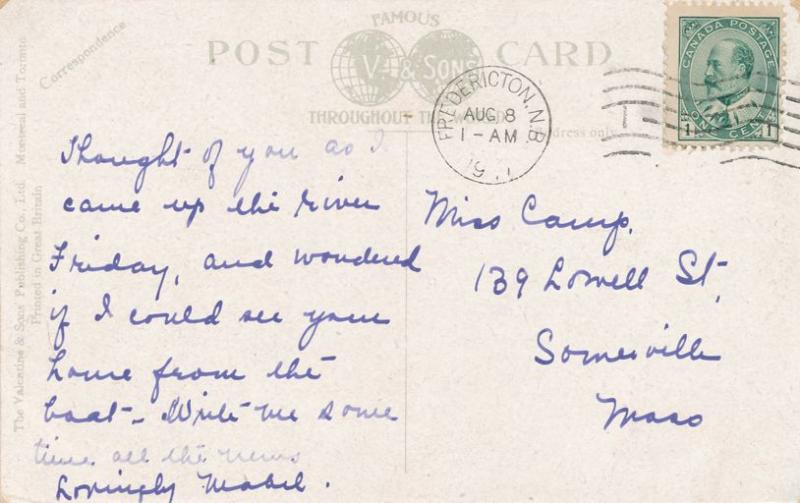 FAMOUS
POST CARD
V. & SONS
THROUGHOUT THE WORLD
Correspondence
Address only
The Valentine & Sons Publishing Co., Ltd. Montreal and Toronto
Printed in Great Britain
FREDERICTON, N.B.
AUG 8
1-AM
CANADA POSTAGE
ONE CENT
1 1
Thought of you as I
came up the river
Friday, and wondered
if I could see your
home from the
boat- Write me some
time all the news
Lovingly Mabel.
Miss Camp.
139 Lowell St,
Somerville
Mass